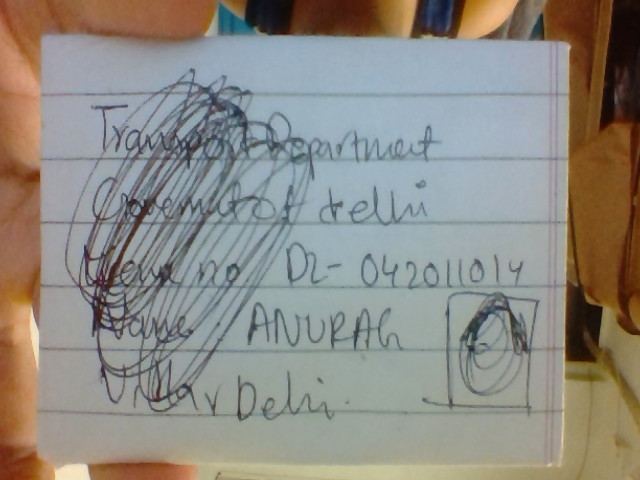 Transport Department
Government of delhi
no DL- 042011014
Name ANURAG
Delhi.